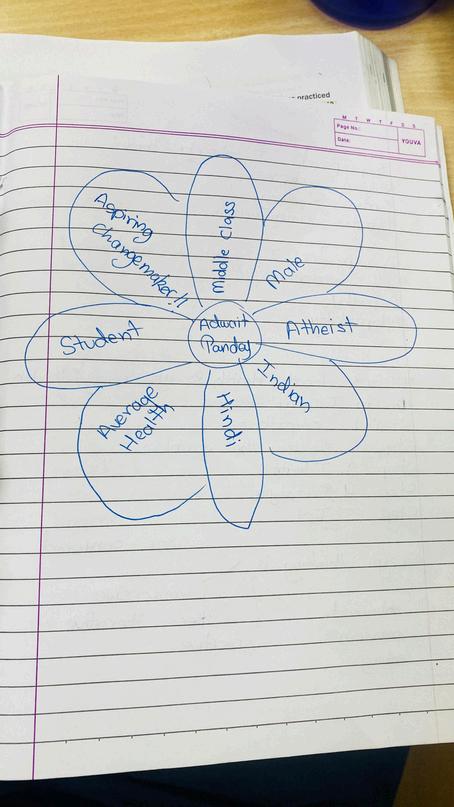 practiced
M T W T F S S
Page No.:
Date:
YOUVA
Aspiring
Changemaker!!
Middle Class
Male
Student
Adwait
Pandey
Atheist
Indian
Average
Health
Hindi